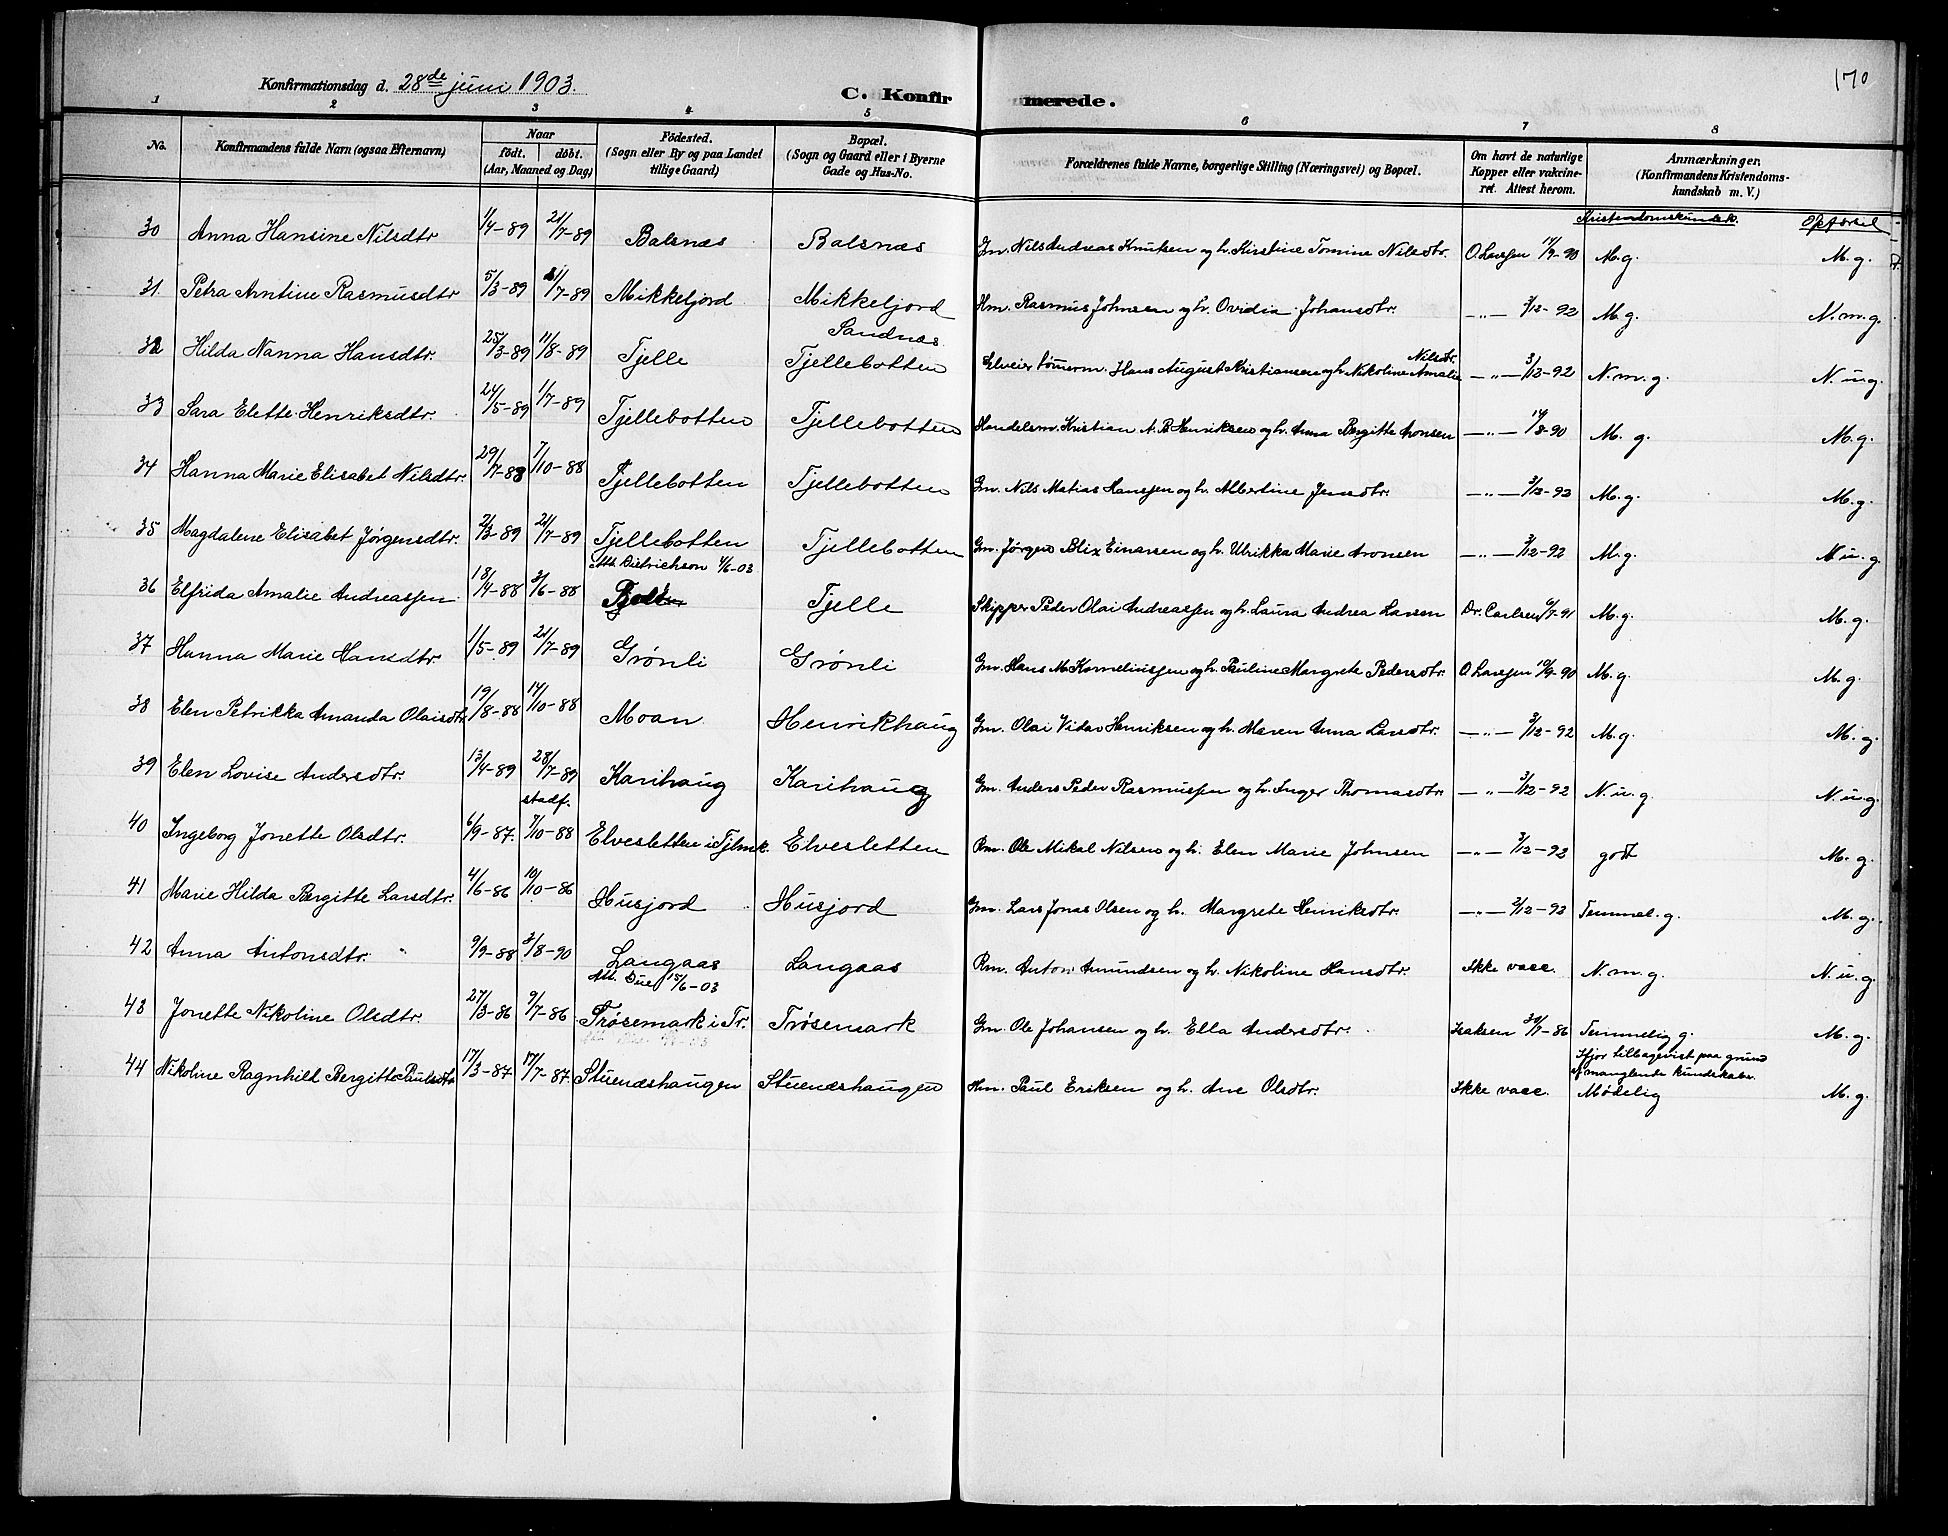 170
Konfirmationsdag d. 28de juni 1903.
C. Konfirmerede.
1 2 3 4 5 6 7 8
No. Konfirmandens fulde Navn (ogsaa Efternavn) Naar födt. döbt. (Aar, Maaned og Dag) Födested. (Sogn eller By og paa Landet tillige Gaard) Bopæl. (Sogn og Gaard eller i Byerne Gade og Hus-No. Forældrenes fulde Navne, borgerlige Stilling (Næringsvei) og Bopæl. Om havt de naturlige Kopper eller vakcineret. Attest herom. Anmærkninger. (Konfirmandens Kristendomskundskab m. V.)
Kristendomskundsk. Opførsel
30 Anna Hansine Nilsdtr 1/4-89 21/7-89 Balsnæs Balsnæs Gm. Nils Andreas Knutsen og h. Kirstine Tomine Nilsdtr. O. Larssen 17/9-90 M.g. M.g.
31 Petra Antine Rasmusdtr 5/3-89 21/7-89 Mikkeljord Mikkeljord Hm. Rasmus Johnsen og h. Ovidia Johansdtr. -"- 3/12-92 M.g. N.m.g.
32 Hilda Nanna Hansdtr. 25/3-89 11/8-89 Tjelle Sandnæs Tjellebotten Selveier tømerm. Hans August Kristiansen og h. Nikoline Amalie Nilsdtr. -"- 3/12-92 N.m.g. N.u.g.
33 Sara Elette Henriksdtr. 24/5-89 1/7-89 Tjellebotten Tjellebotten Handelsm. Kristian A. B. Henriksen og h. Anna Bergitte Aronsen -"- 17/8-90 M.g. M.g.
34 Hanna Marie Elisabet Nilsdtr. 29/7-88 7/10-88 Tjellebotten Tjellebotten Gm. Nils Matias Hanssen og h. Albertine Jensdtr. -"- 3/12-92 M.g. M.g.
35 Magdalene Elisabet Jørgensdtr. 2/3-89 21/7-89 Tjellebotten Tjellebotten Gm. Jørgen Blix Einarsen og h. Ulrikka Marie Aronsen -"- 3/12-92 M.g. M.u.g.
Att. Dietrichson 4/6-03
36 Elfrida Amalie Andreassen 18/4-88 3/6-88 Tjelle Skipper Peder Olai Andreassen og h. Laura Andrea Larsen Dr. Carlsen 6/7-91 M.g. M.g.
37 Hanna Marie Hansdtr. 1/5-89 21/7-89 Grönli Grönli Gm. Hans M. Korneliussen og h. Pauline Margrete Pedersdtr. O. Larssen 19/9-90 M.g. M.g.
38 Elen Petrikka Amanda Olaisdtr 19/8-88 14/10-88 Moan Henrikhaug Gm. Olai Vidar Henriksen og h. Maren Anna Larsdtr. -"- 3/12-92 M.g. M.g.
39 Elen Lovise Andersdtr. 13/4-89 28/7-89 Karihaug Karihaug Gm. Anders Peder Rasmussen og h. Inger Thomasdtr. -"- 3/12-92 N.u.g. N.u.g.
stadf.
40 Ingeborg Jonette Olsdtr. 6/9-87. 7/10-88 Elvesletten i Tjelmk. Elvesletten Rm. Ole Mikal Nilsen og h. Elen Marie Johnsen -"- 3/12-92 godt M.g.
41 Marie Hilda Bergitte Larsdtr. 4/6-86 10/10-86 Husjord Husjord Gm. Lars Jonas Olsen og h. Margrete Henriksdtr. -"- 3/12-92 Temmel. g. M.g.
42 Anna Antonsdtr. 9/9-88 3/8-90 Langaas Langaas Rm. Anton Amundsen og h. Nikoline Hansdtr. Ikke vacc. N.m.g. N.u.g.
Att. Due 15/6-03
43 Jonette Nikoline Olsdtr. 27/3-86 9/7-86 Trøsemark i Tr. Trøsemark Gm. Ole Johansen og h. Ella Andersdtr. Isaksen 30/7-86 Temmelig g. M.g.
44 Nikoline Ragnhill Bergitte Paulsdtr 17/3-87 17/7-87. Stuenæshaugen Stuenæshaugen Hm. Paul Eriksen og h. Ane Olsdtr. Ikke vacc. Ifjor tilbagevist paa grund af manglende kundskaber. Mådelig M.g.